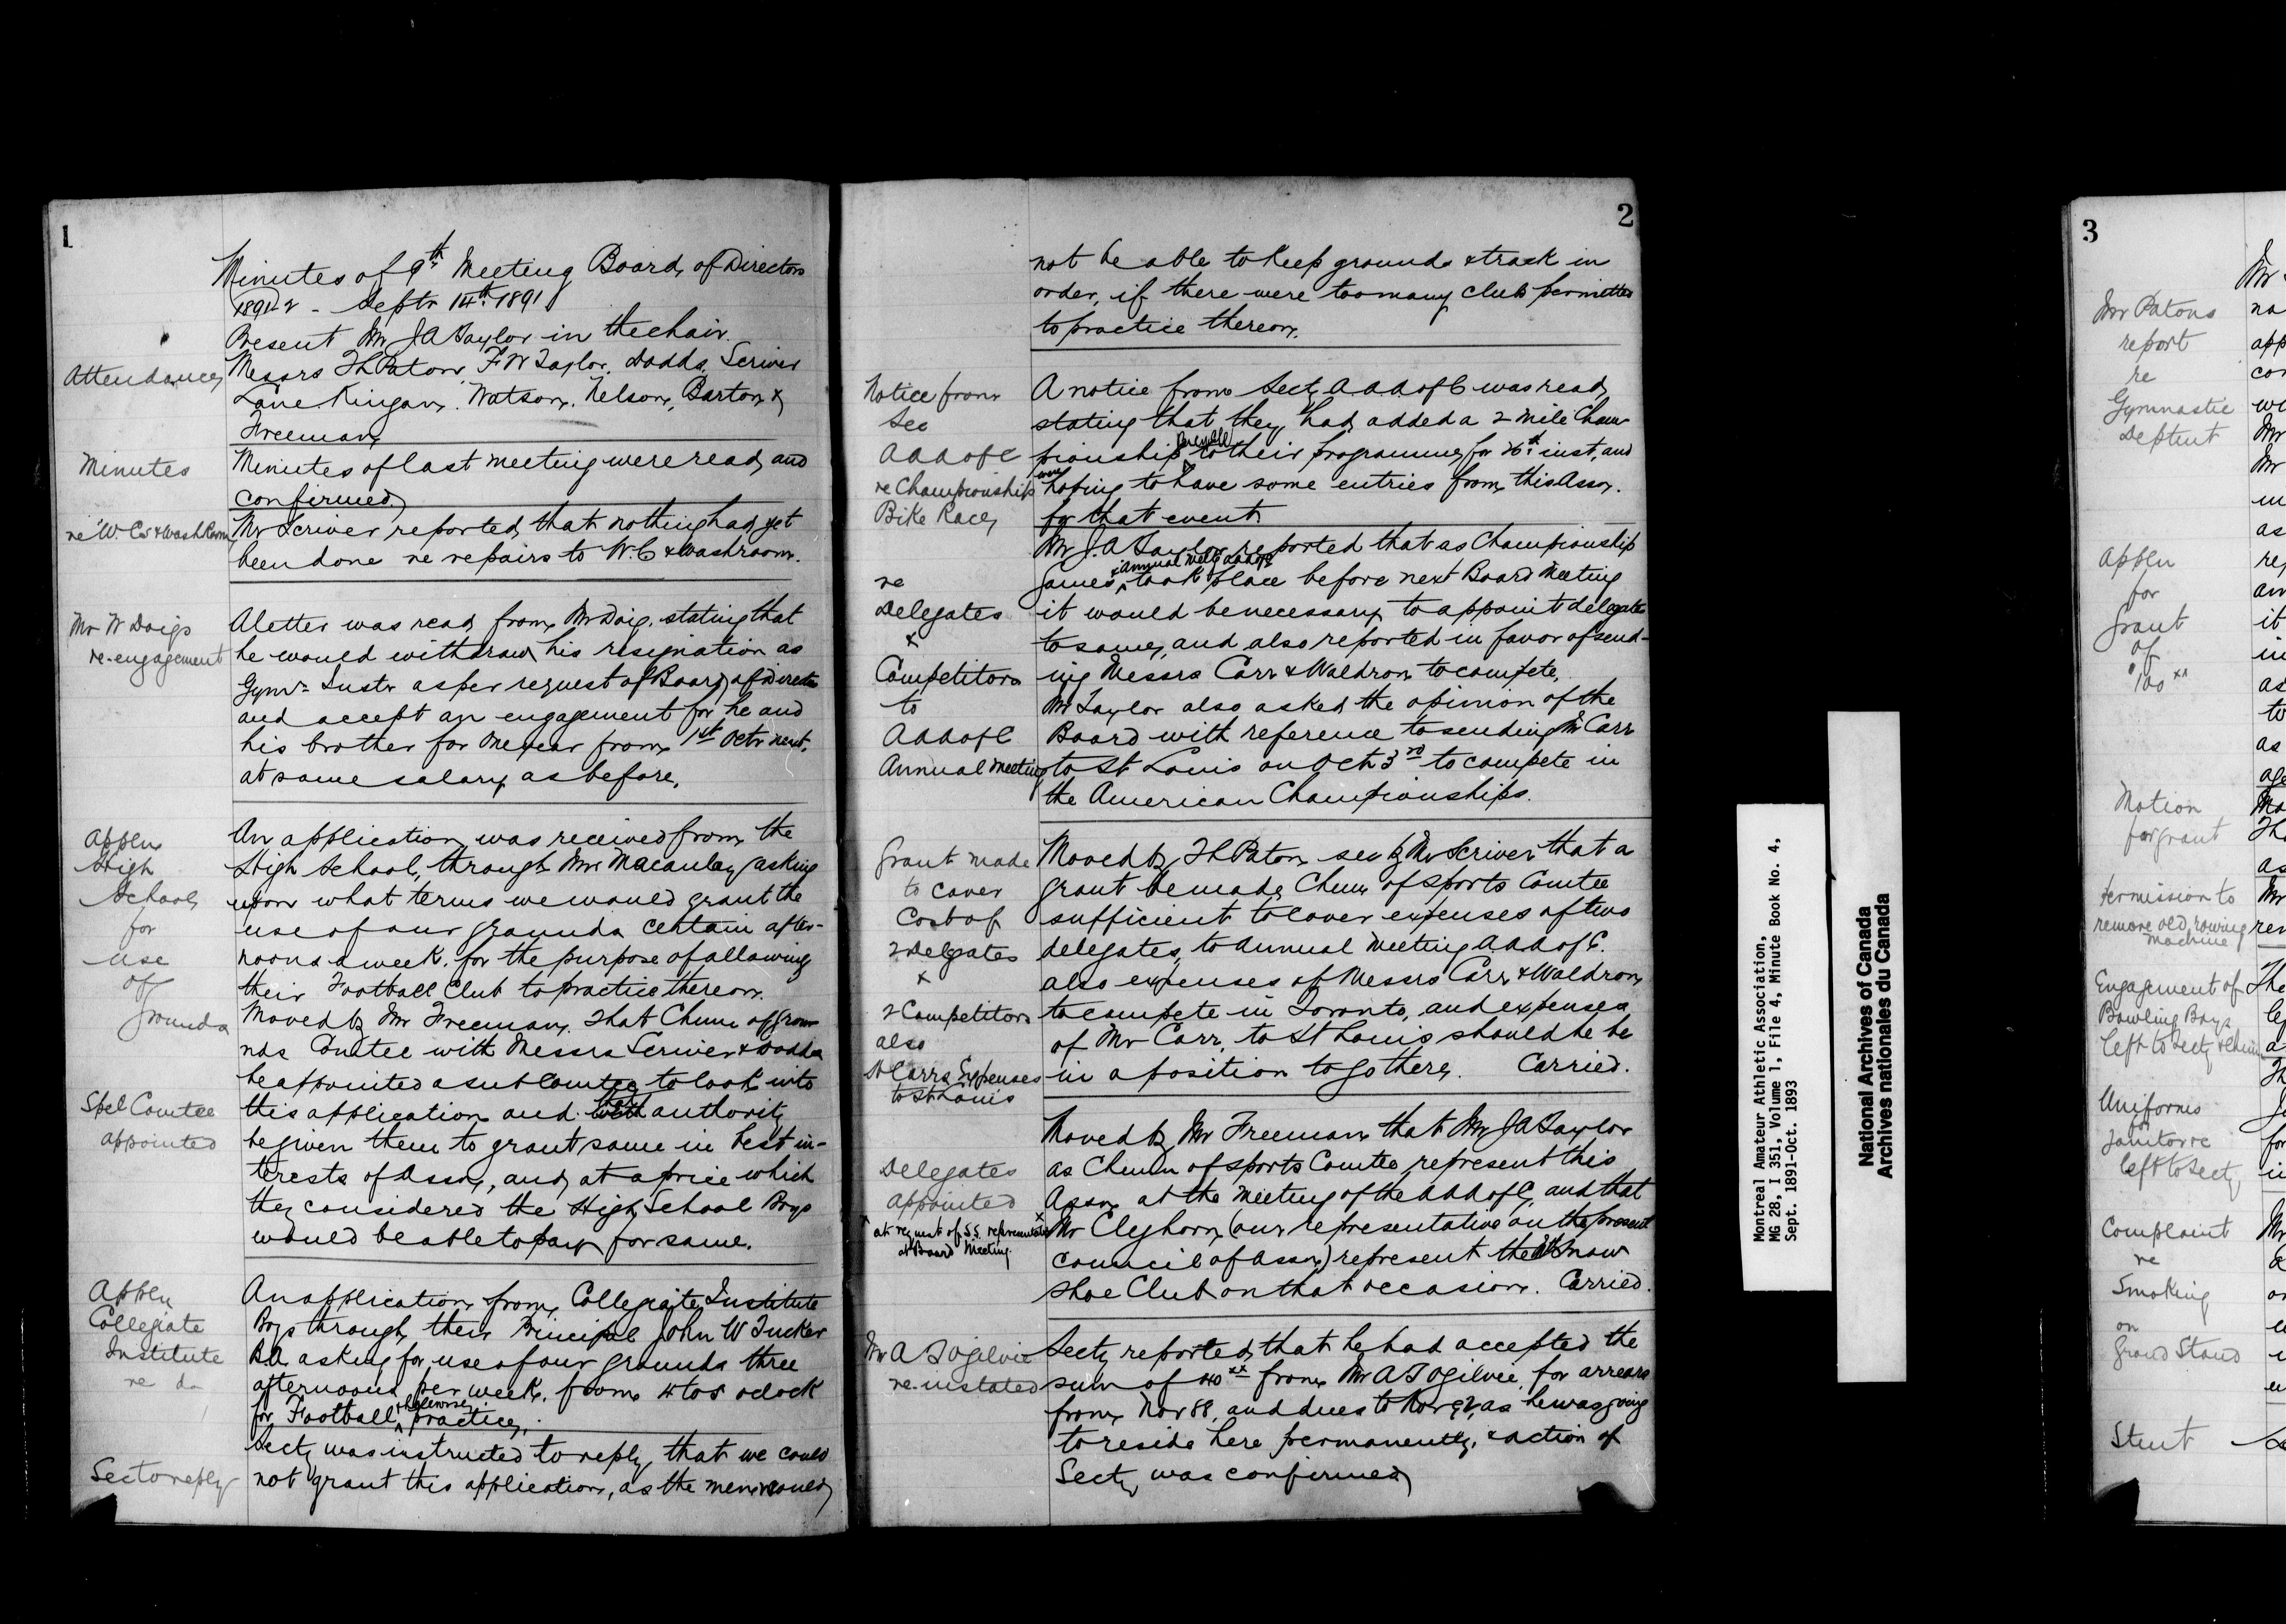 1
Minutes of 9th Meeting Board of Directors
1891-2 - Septr 14th 1891
Present Mr J A Taylor in the chair.
Attendance
Messrs T L Paton, F W Taylor, Dodds, Scriver
Lane, Kingan, Watson, Nelson, Barton &
Freeman
Minutes
Minutes of last meeting were read and
confirmed
re W.Cs & Wash Room
Mr Scriver reported that nothing had yet
been done re repairs to W.C & washroom.
Mr W Doigs
re-engagement
A letter was read from Mr Doig, stating that
he would withdraw his resignation as
Gymn Instr as per request of Board of Directors
and accept an engagement for he and
his brother for one year from 1st Octr next,
at same salary as before.
Appln
High
School
for
use
of
grounds
An application was received from the
High School, through Mr Macaulay asking
upon what terms we would grant the
use of our grounds certain after-
noons a week, for the purpose of allowing
their Football Club to practice thereon.
Moved by Mr Freeman, That Chmn of Grou-
nds Comtee with Messrs Scriver & Dodds
be appointed a sub Comtee to look into
Spel Comtee
appointed
this application and authority
be given them to grant same in best in-
terests of Assn, and at a price which
they considered the High School Boys
would be able to pay for same.
Appln
Collegiate
Institute
re do
An application from Collegiate Institute
Boys through their Principal John W Tucker
B.A. asking for use of our grounds three
afternoons per week, from 4 to 5 oclock
for Football & Lacrosse practice.
Sec to reply
Secty was instructed to reply that we could
not grant this application, as the men would
2
not be able to keep grounds & track in
order, if there were too many clubs permitted
to practice thereon.
Notice from
Sec
A A A of C
re Championship
Bike Race
A notice from Secty A A A of C was read,
stating that they had added a 2 mile Cham
pionship Bicycle to their programme for 26th inst, and
were hoping to have some entries from this Assn.
for that event.
re
Delegates
&
Competitors
to
A A A of C
Annual Meeting
Mr J. A Taylor reported that as Championship
Games & annual meetg A A A of C took place before next Board Meeting
it would be necessary to appoint delegates
to same, and also reported in favor of send-
ing Messrs Carr & Waldron to compete.
Mr Taylor also asked the opinion of the
Board with reference to sending Mr Carr
to St Louis on Oct 3rd to compete in
the American Championships.
Grant made
to cover
Cost of
2 Delegates
&
2 Competitors
also
Mr Carrs Expenses
to St Louis
Moved by T L Paton sec by Mr Scriver that a
grant be made Chmn of Sports Comtee
sufficient to cover expenses of two
delegates, to Annual Meeting A A A of C.
also expenses of Messrs Carr & Waldron
to compete in Toronto, and expenses
of Mr Carr, to St Louis should he be
in a position to go there. Carried.
Delegates
appointed
x at request of S.S. representative
at Board Meeting.
Moved by Mr Freeman that Mr J A Taylor
as Chmn of Sports Comtee represent this
Assn at the meeting of the A A A of C, and that
x Mr Cleghorn (our representative on the present
council of Assn) represent the Snow
Shoe Club on that occasion. Carried.
Mr A T Ogilvie
re-instated
Secty reported that he had accepted the
sum of 40 xx from Mr A T Ogilvie, for arrears
from Nov 88, and dues to Nov 92, as he was going
to reside here permanently, & action of
Secty was confirmed
Montreal Amateur Athletic Association,
MG 28, I 351, Volume 1, File 4, Minute Book No. 4,
Sept. 1891-Oct. 1893
National Archives of Canada
Archives nationales du Canada
3
Mr Patons
report
re
Gymnastic
Deptmt
Appln
for
Grant
of
$100 xx
Motion
for grant
Permission to
remove old rowing
machine
Engagement of
Bowling Boys
left to Secty
Uniforms
for
Janitor re
left to Secty
Complaint
re
Smoking
on
Grand Stand
Stmt